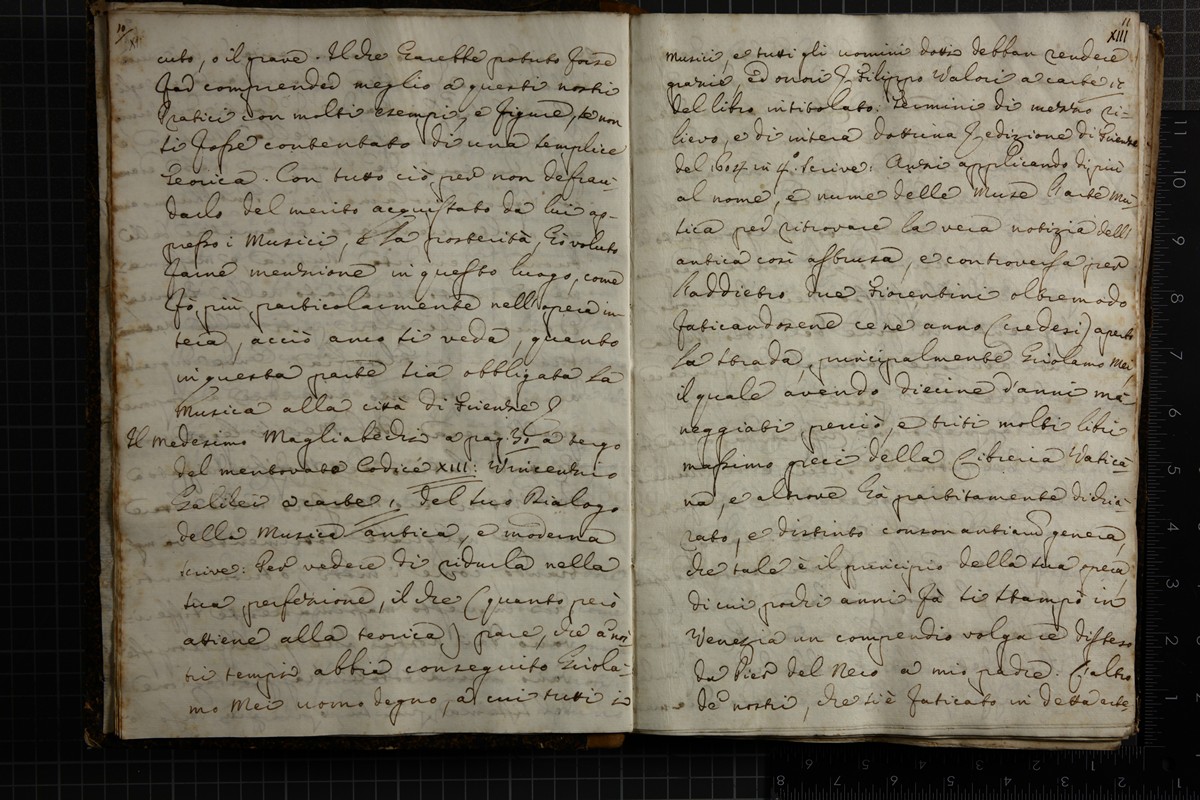 10
XII
cuto, o il grave. Il che sarebbe potuto forse
far comprender meglio a questi nostri
Pratici con molti esempi, e figure, se non
si fosse contentato di una semplice
teorica. Con tutto ciò per non defrau-
darlo del merito acquistato da lui ap-
presso i Musici, e la posterità, hò voluto
farne menzione in questo luogo, come
fò più particolarmente nell'opera in-
tera, acciò anco si veda, quanto
in questa parte sia obbligata la
Musica alla città di Firenze
Il medesimo Magliabechi a pag. 31 a tergo
del mentovato Codice XIII: Vincenzio
Galilei a carte 1 del suo Dialogo
della Musica antica, e moderna
scrive: Per vedere di ridurla nella
sua perfezione, il che (quanto però
attiene alla teorica) pare, che a' no-
stri tempi abbia conseguito Girola-
mo Mei uomo degno, a cui tutti i
11
XIII
Musici, e tutti gli uomini dotti debban rendere
grazie, ed onori. Filippo Valori a carte 12
del libro intitolato: Termini di mezzo ri-
lievo, e di intera dottrina edizione di Firenze
del 1604 in 4º. scrive: Anzi applicando di più
al nome, e nume delle Muse l'arte Mu-
sica per ritrovare la vera notizia dell'
antica così astrusa, e controversa per
l'addietro due Fiorentini oltremodo
faticandosene ce ne anno (credesi) aperto
la strada, principalmente Girolamo Mei,
il quale avendo diecine d'anni ma-
neggiati perciò, e triti molti libri
massimo greci della Libreria Vatica-
na, e altrove hà partitamente dichia-
rato, e distinto consonantiarum genera,
che tale è il principio della sua opera,
di cui pochi anni fà si stampò in
Venezia un compendio volgare disteso
da Pier del Nero a mio padre. L'altro
de' nostri, che si è faticato in detta arte